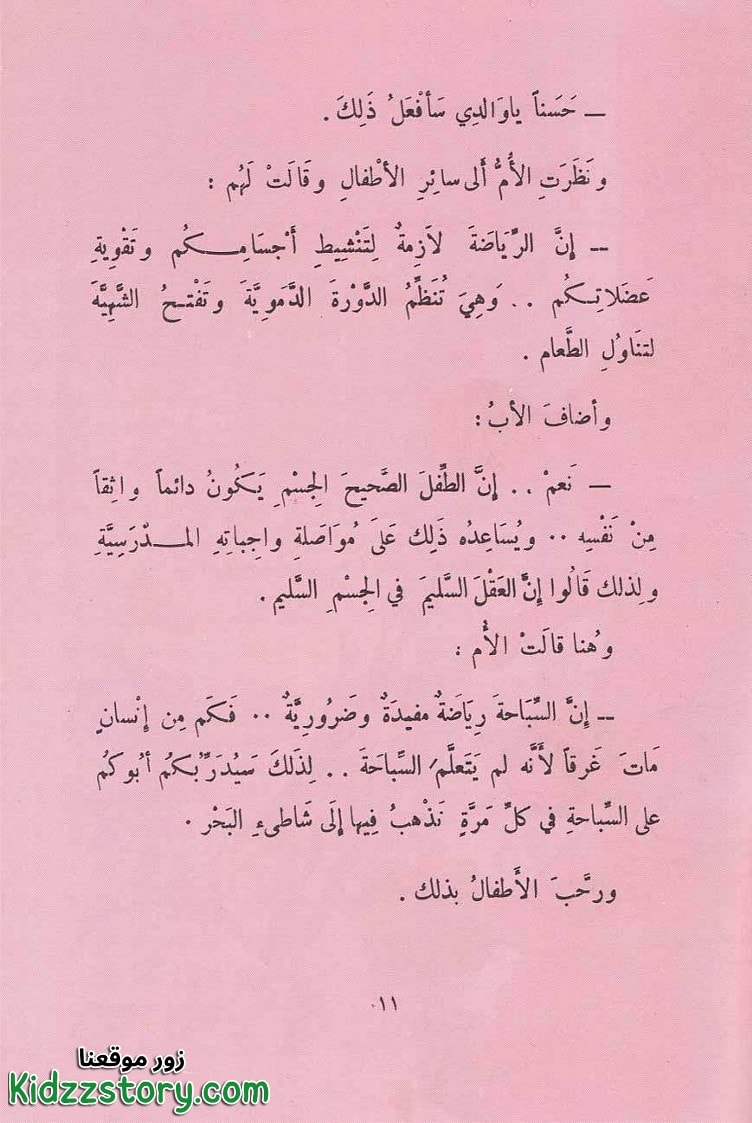 ــ حَسَناً ياوَالدِي سَأفْعَلُ ذَلِكَ .
ونَظَرَتِ الأُمُّ ألى سائِرِ الأطْفالِ وقَالَتْ لَهُم :
ــ إنَّ الرِّيَاضَةَ لاَزِمةٌ لِتَنْشِيطِ أجْسَامِـكُم وتَقْوِيةِ
عَضَلاتِـكُم .. وَهِيَ تُنَظِّمُ الدَّوْرةَ الدَّمَويَّةَ وتَفْتـحُ الشَّهِيَّةَ
لتنَاوُلِ الطَّعام .
وأضافَ الأبُ :
ــ نَعمْ .. إنَّ الطِّفلَ الصَّحيحَ الجِسْمِ يَكُونُ دائماً واثِقاً
مِنْ نَفْسِه .. ويُسَاعِدُه ذَلِك عَلىَ مُوَاصَلةِ واجِباتِهِ المـدْرَسِيَّةِ
ولِذلك قَالُوا إنَّ العَقْلَ السَّليمَ في الجِسْمِ السَّليم .
وهُنا قالَتْ الأُم :
ــ إنَّ السِّبَاحةَ رِيَاضَةٌ مفيدَةٌ وضَرُورِيَّةٌ .. فَكَم مِن إنْسانٍ
مَاتَ غَرقاً لأَنَّه لم يَتَعلَّم السِّباحَةَ .. لِذَلكَ سَيُدَرِّبُكُم أبُوكُم
على السِّباحةِ في كلِّ مَرَّةٍ نَذْهبُ فِيها إلَى شَاطىءِ البَحْر .
ورحَّبَ الأَطفالُ بذلك .
١١
زور موقعنا
Kidzzstory.com